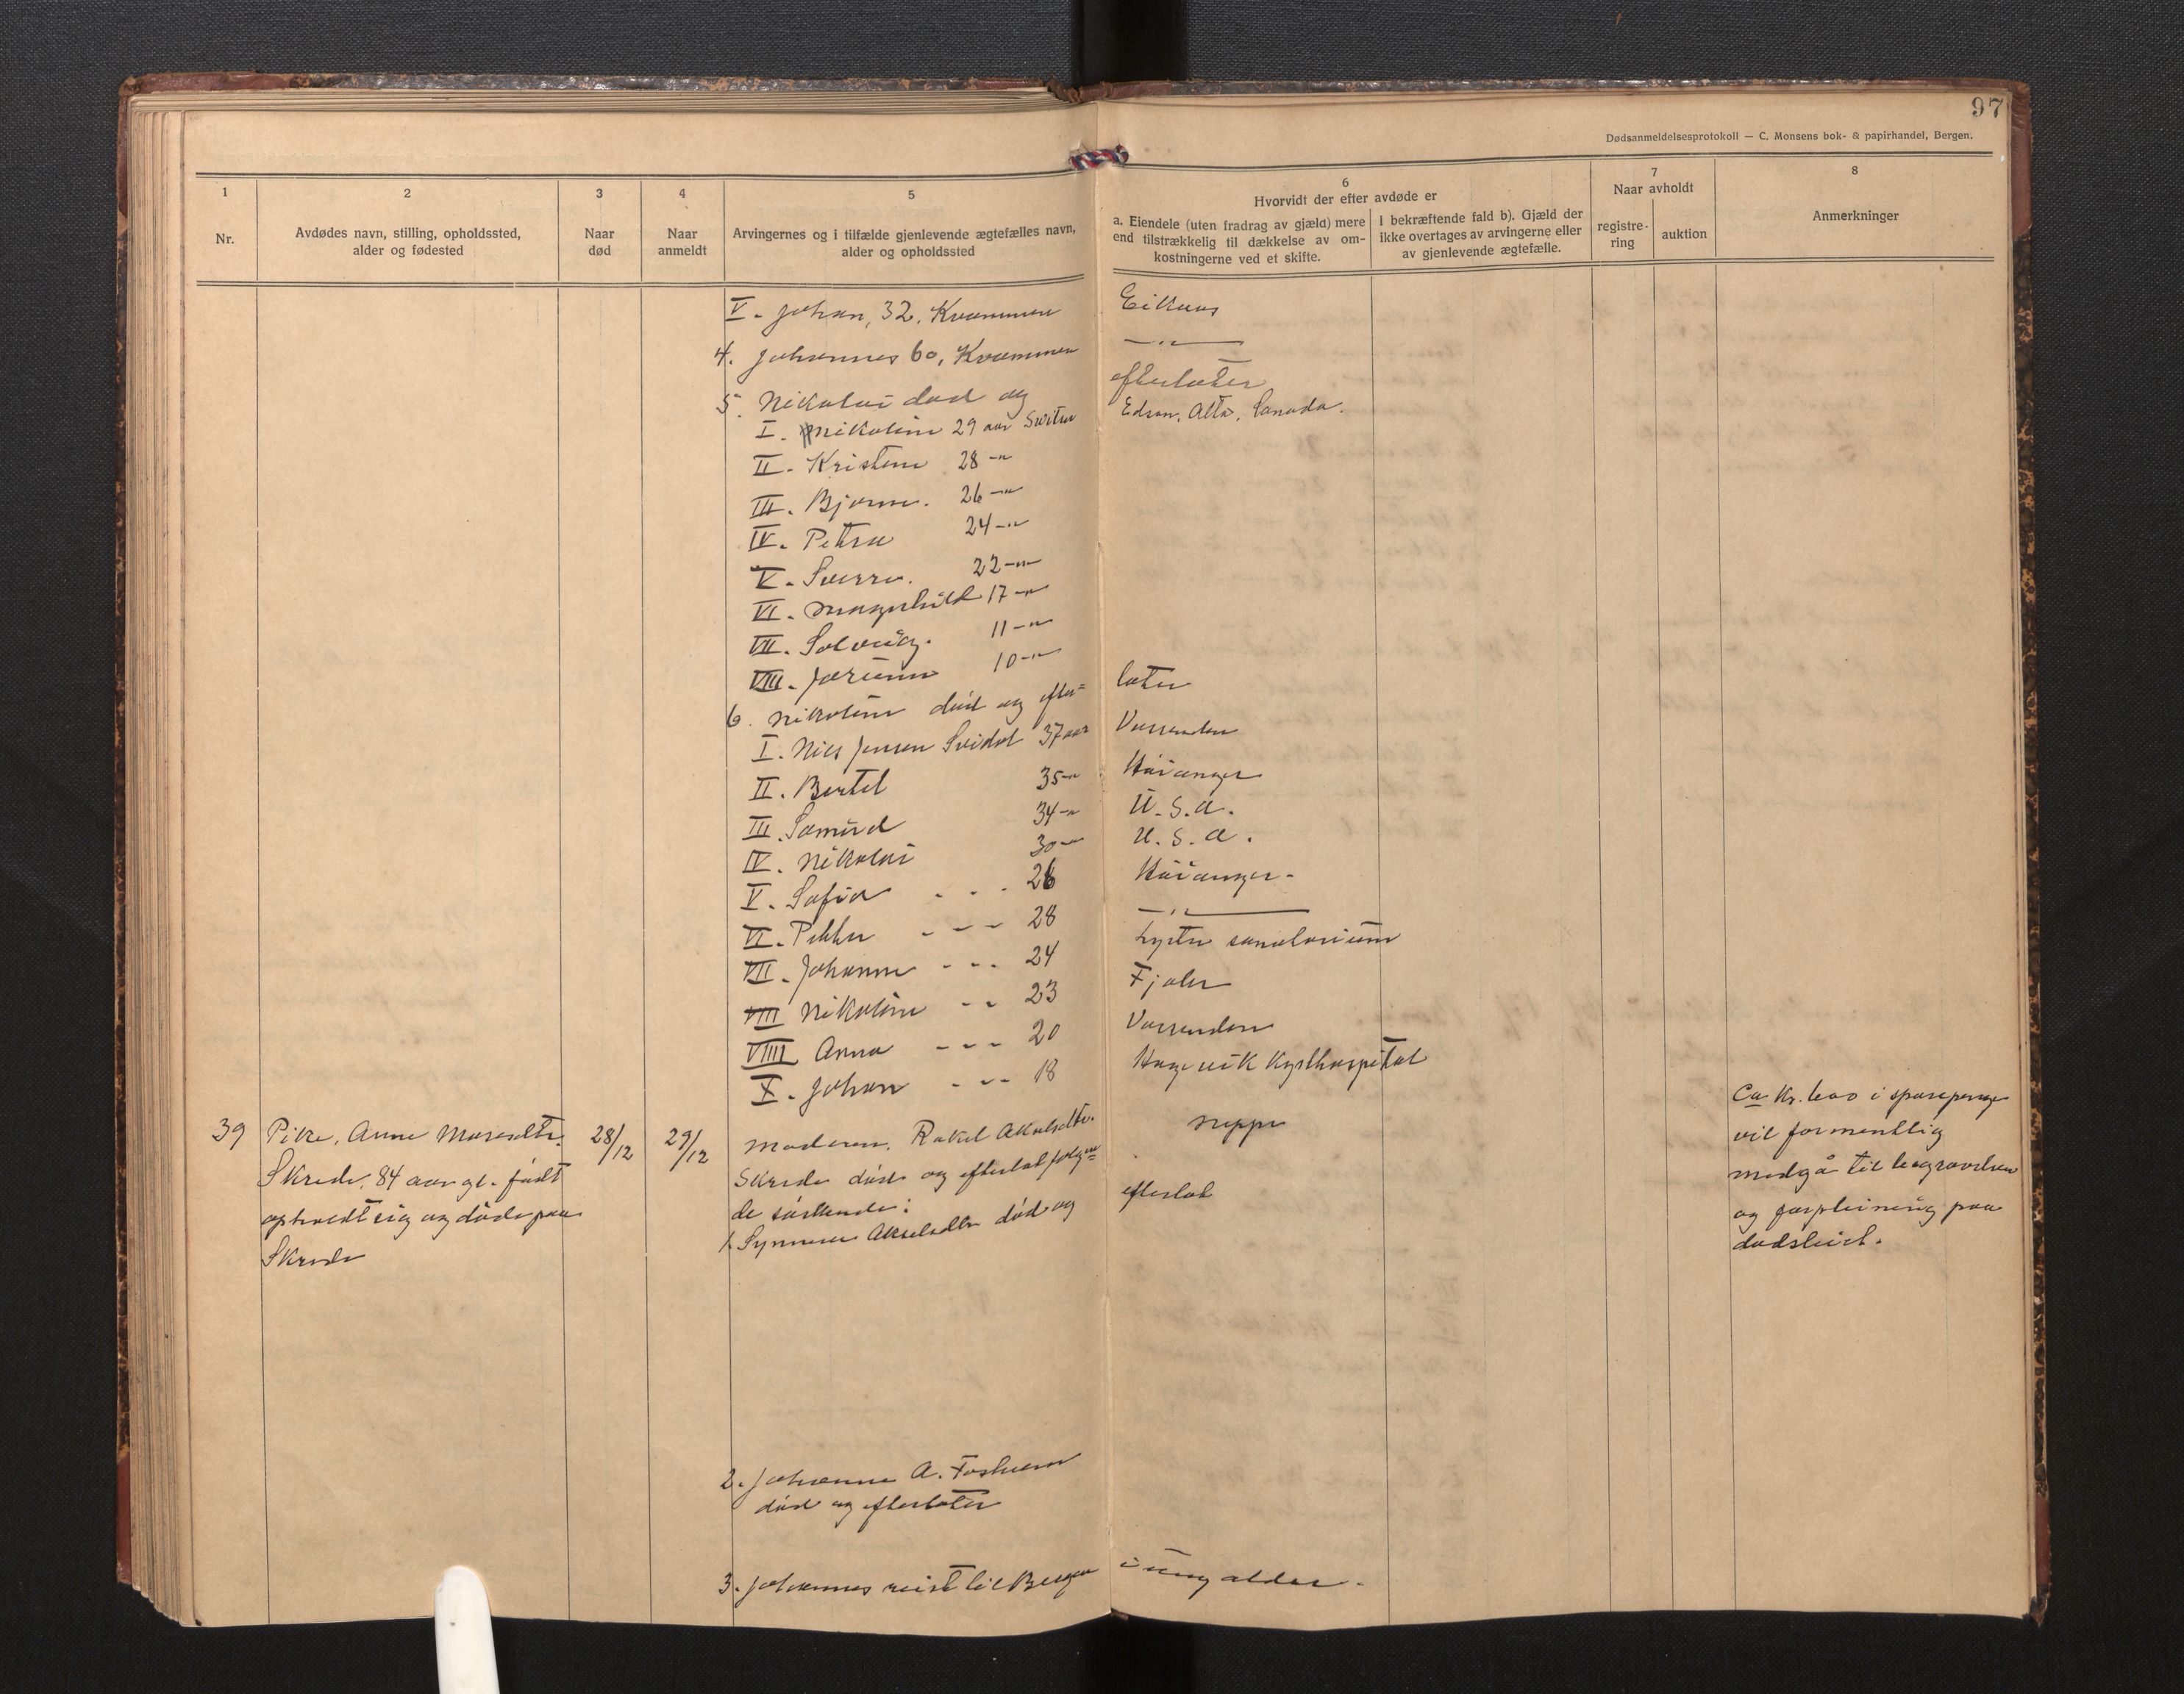 97
Dødsanmeldelsesprotokoll — C. Monsens bok- & papirhandel, Bergen.
1
2
3
4
5
6
7
8
Nr.
Avdødes navn, stilling, opholdssted,
alder og fødested
Naar
død
Naar
anmeldt
Arvingernes og i tilfælde gjenlevende ægtefælles navn,
alder og opholdssted
Hvorvidt der efter avdøde er
a. Eiendele (uten fradrag av gjæld) mere
end tilstrækkelig til dækkelse av om-
kostningerne ved et skifte.
I bekræftende fald b). Gjæld der
ikke overtages av arvingerne eller
av gjenlevende ægtefælle.
Naar avholdt
registre-
ring
auktion
Anmerkninger
V. Johan, 32, Kvammen Eikaas
4. Johannes 60, Kvammen —"—
5. Nikolai død og efterlater
I. Nikoline 29 aar Edson, Alta, Canada.
II. Kristine 28 -"-
III. Bjarne. 26 -"-
IV. Petra 24 -"-
V. Sverre. 22 -"-
VI. Magnhild 17 -"-
VII. Solveig. 11 -"-
VIII. Jorunn 10 -"-
6. Nikoline død og efter= later
I. Nils Jensen Svidal 37 aar Vassenden
II. Bertel 35 -"- Høianger
III. Samuel 34 -"- U.S.A.
IV. Nikolai 30 -"- U.S.A.
V. Sofia - - - 26 Høianger-
VI. Petter - - - 28 —"—
VII. Johanne - - - 24 Lyster sanatorium
VIII Nikoline - - 23 Fjaler
VIIII Anna - - - 20 Vassenden
X. Johan - - - 18 Hagevik Kysthospital
39 Pike, Anne Marie 28/12 29/12 Moderen, Rakel Akselsdtr. neppe
Skrede, 84 aar gl. født
opholdt sig og døde paa
Skrede
Skrede død og efterlot følgen=
de søskende:
1. Synneva Akselsdtr død og efterlot
Ca Kr. 600 i sparepenge
vil formentlig
medgå til begravelsen
og forpleining paa
dødsleiet.
2. Johanne A. Fosheim
død og efterlater
3. Johannes reist til Bergen i ung alder.